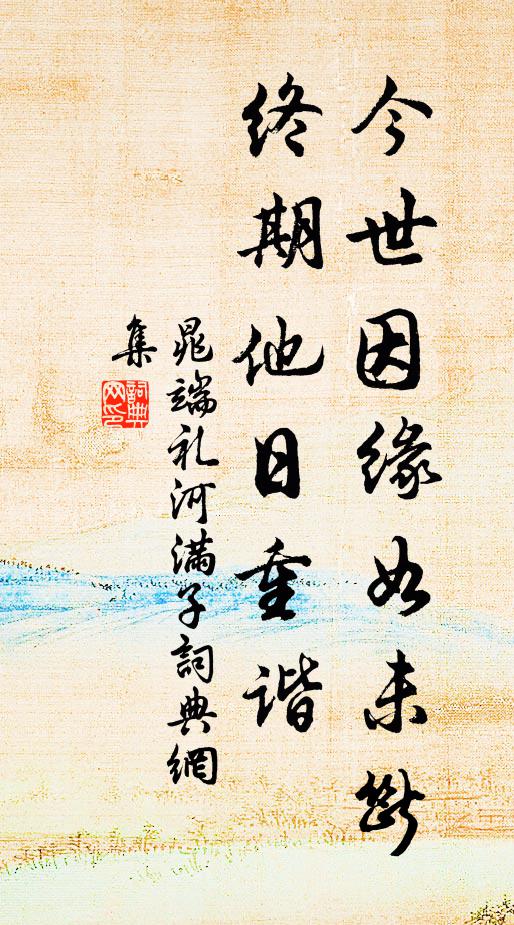 今世因缘如未断
终期他日重谐
晁端礼河满子詞典網
集
詞典网印